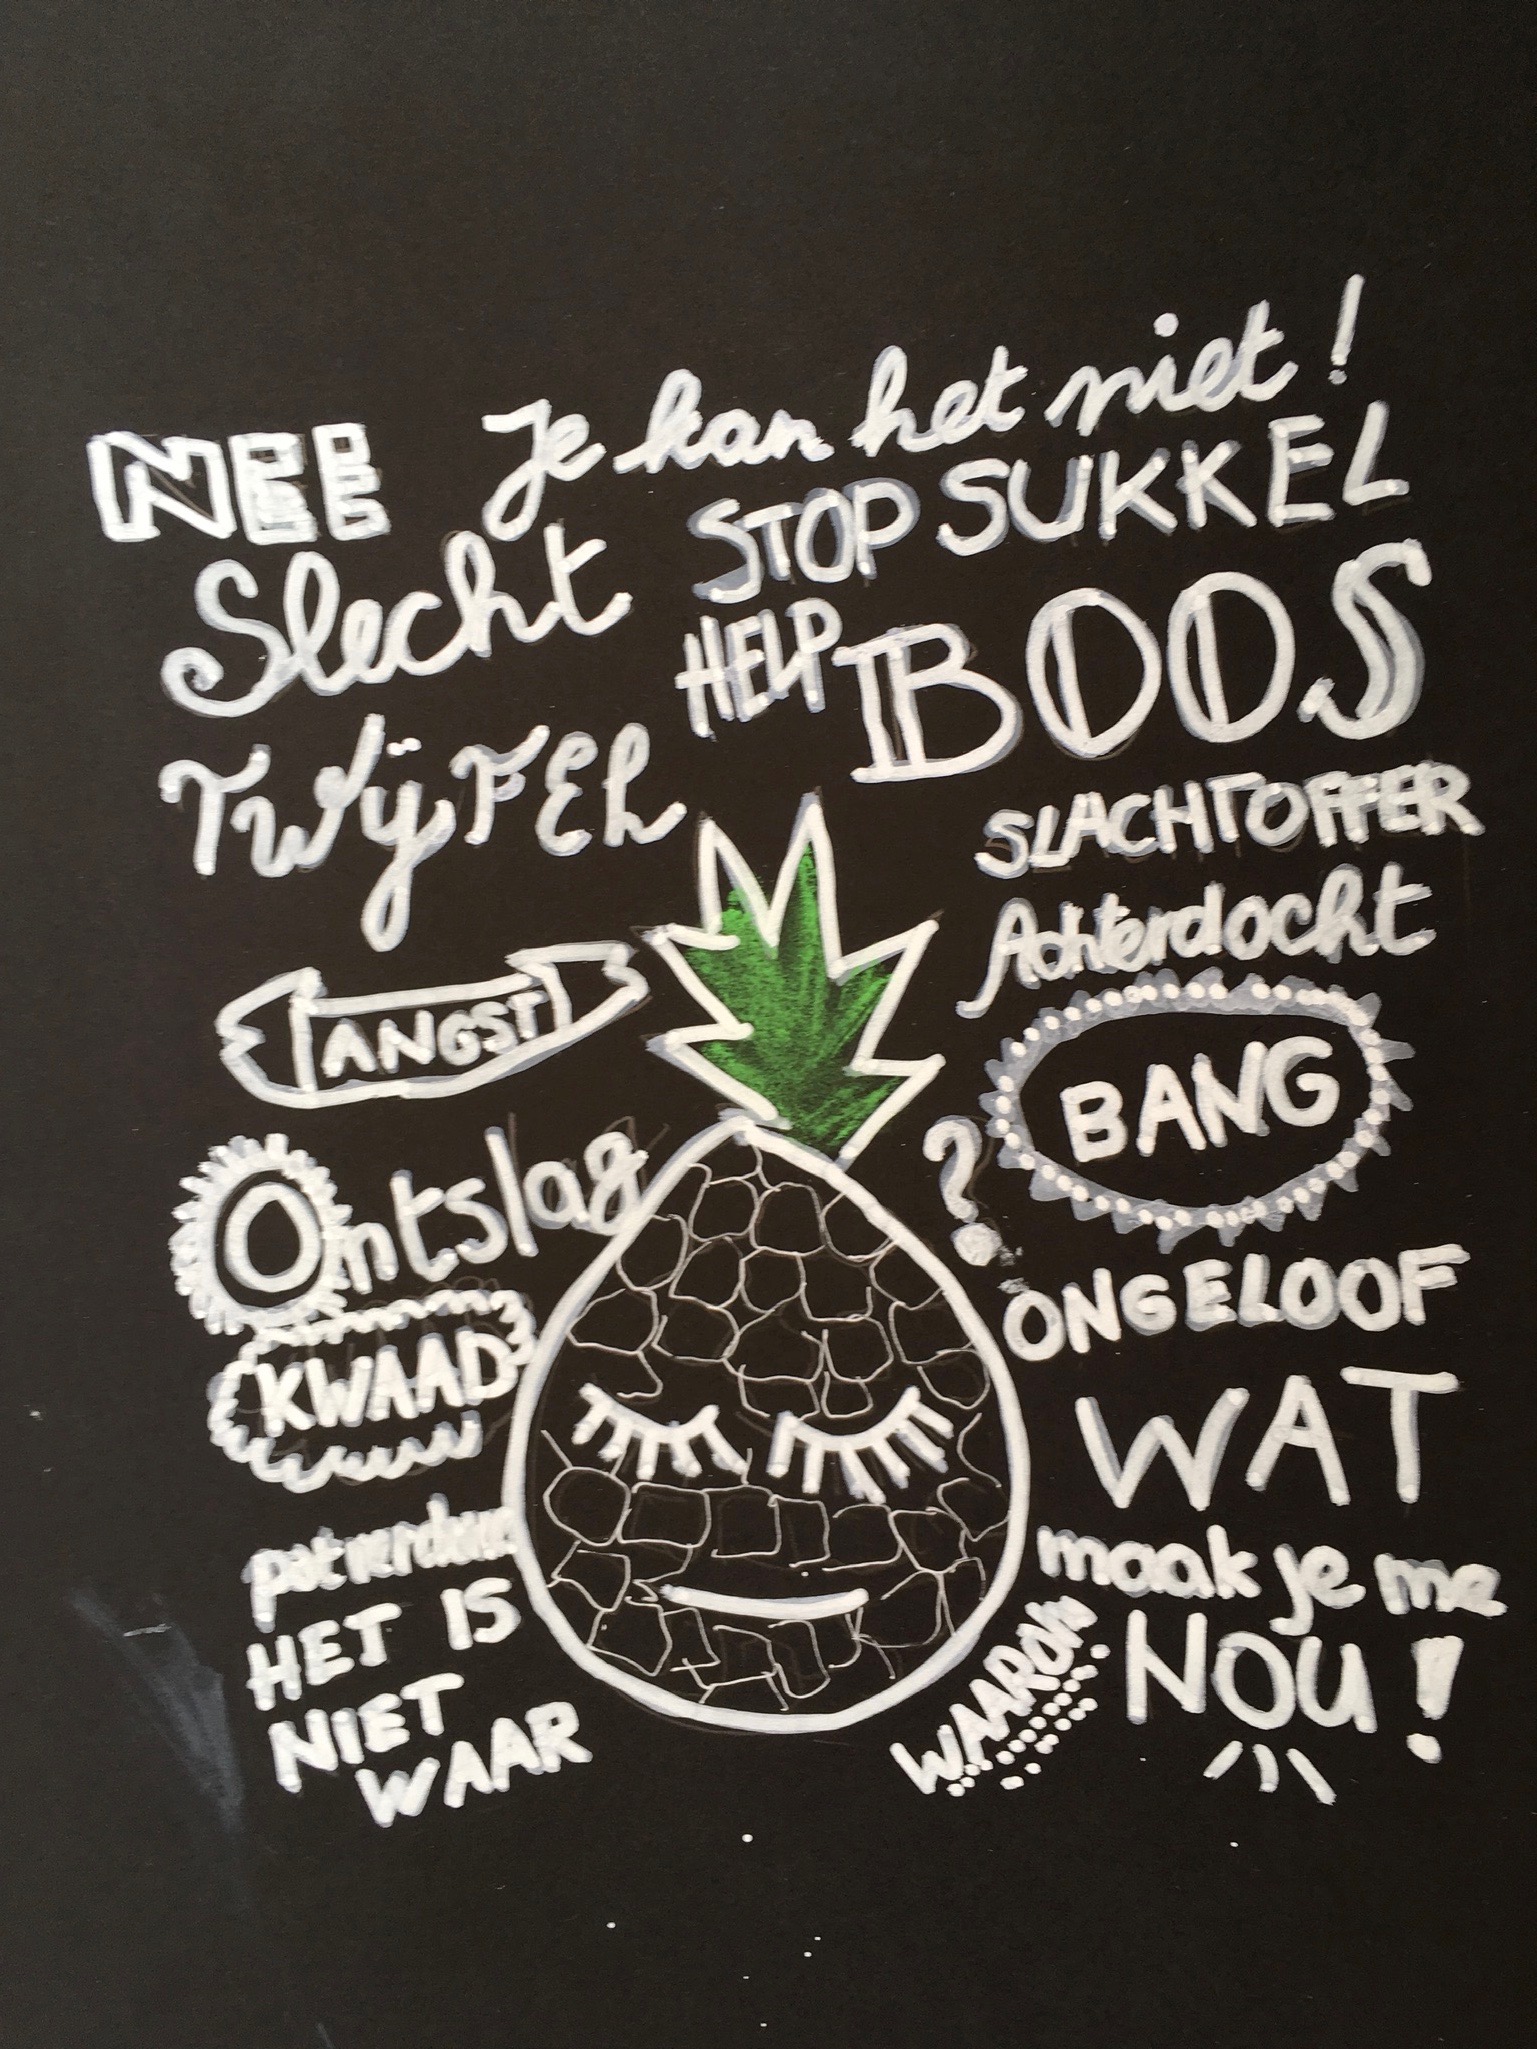 NEE
Je kan het niet!
STOP SUKKEL
Slecht
HELP
BOOS
TWijFEL
SLACHTOFFER
Achterdocht
ANGST
BANG
?
Ontslag
ONGELOOF
KWAAD
WAT
maak je me
NOU!
potverdorie
HET IS
NIET
WAAR
WAAROM